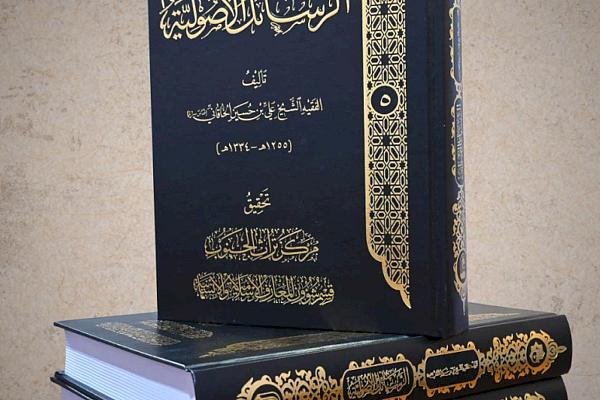 الرسائل الأصولية
تأليف
الفقيه الشيخ علي بن حسين الخاقاني
(١٢٥٥هـ - ١٣٣٤هـ)
٥
تحقيق
مركز تراث الجنوب
قسم شؤون المعارف الإسلامية والإنسانية
الرسائل الأصولية